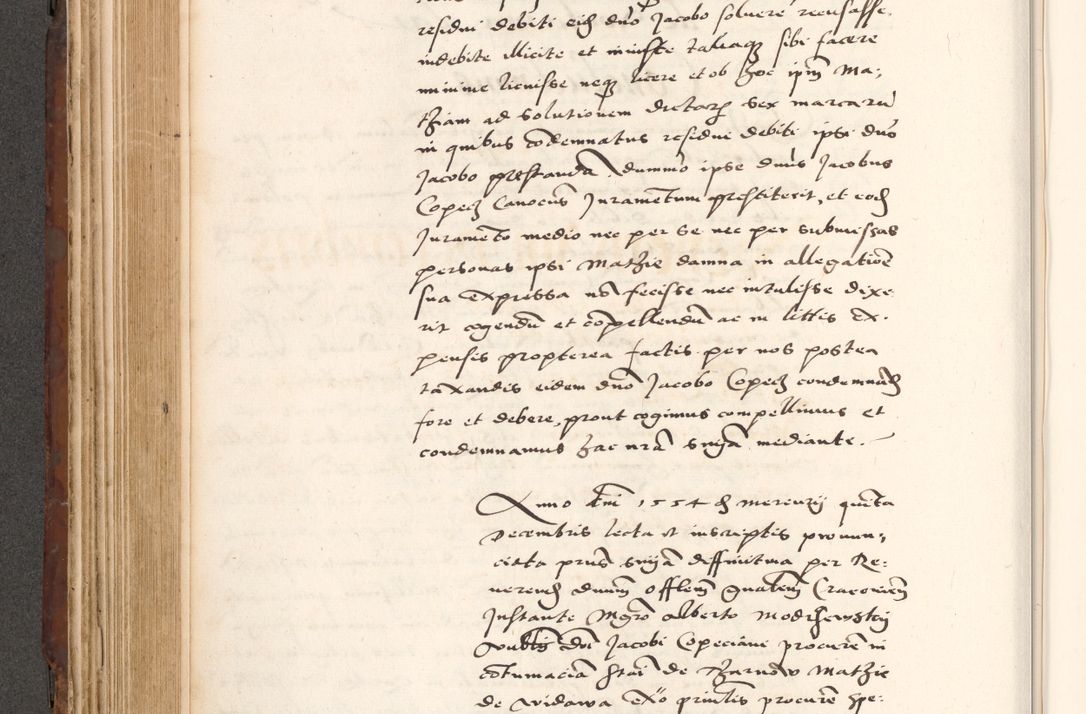 residui debiti eidē dno Jacobo soluere recusasse
indebite illicite et iniuste taliaqȝ sibi facere
minime licuisse neqȝ licere et ob hoc ipm̄ Ma,
thiam ad solutionem dictarȝ sex marcarū
in quibus condemnatus residui debiti ipsi dno
Jacobo prestanda dummō ipse dnus Jacobus
Copecȝ Canocus Juramentum prestiterit, et eodē
Juramēto medio nec per se nec per submissas
personas ipsi Mathie damna in allegatiōe
sua expressa nō fecisse nec intulisse dixe
rit cogendū et cōpellendū ac in littis ex.
pensis propterea factis per nos postea
taxandis eidem dno Jacobo Copecȝ condemnādū
fore et debere, prout cogimus compellimus et
condemnamus hac nrā sniā mediante.
Anno dni 1554 die mercurij quīta
Decembris lecta et inscriptis pronun,
ciata prns sniā diffinitiua per Re:
uerendū dnum offlem gnalem Cracovień
Instante Mgro Alberto Modrhewskij
dni Jacobi Copeciane procurē in
cōtumaciā Stai de Tharnow Mathie
de Widawa exo princlis procurē spe: